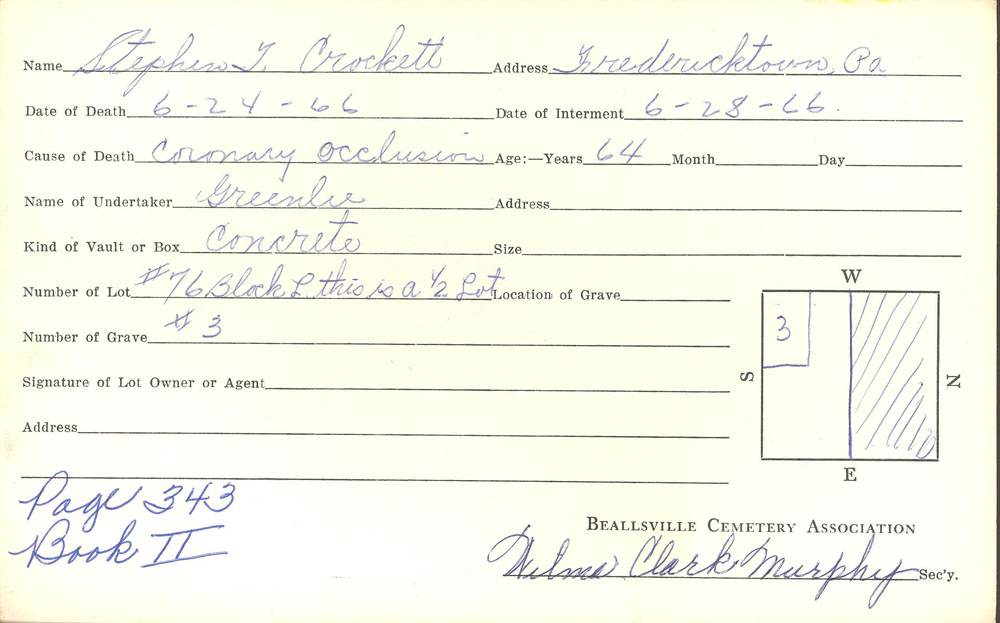 Name Stephen T. Crockett Address Fredericktown, Pa
Date of Death 6-24-66 Date of Interment 6-28-66.
Cause of Death Coronary Occlusion Age:—Years 64 Month Day
Name of Undertaker Greenlee Address
Kind of Vault or Box Concrete Size
Number of Lot #76 Block L this is a ½ Lot Location of Grave
W
Number of Grave # 3
3
S
N
Signature of Lot Owner or Agent
Address
E
Page 343
Book II
BEALLSVILLE CEMETERY ASSOCIATION
Wilma Clark Murphy Sec'y.